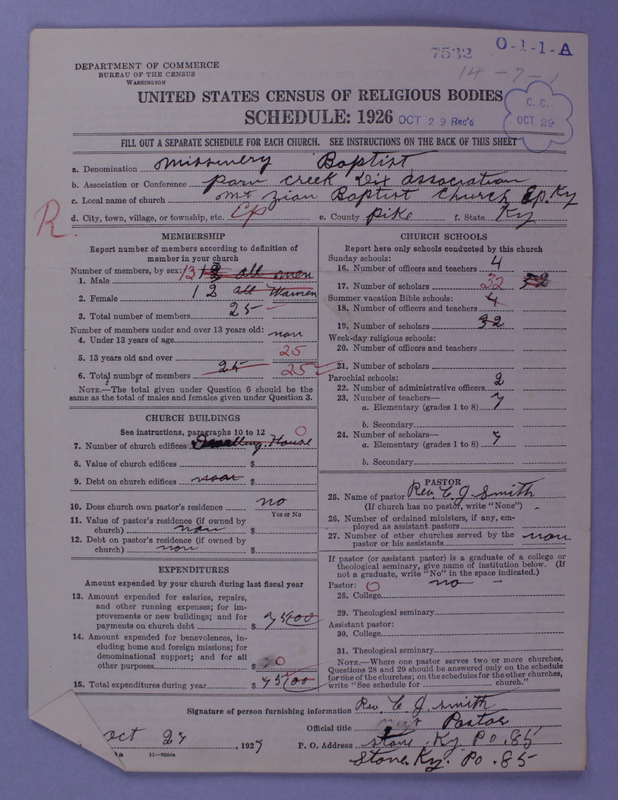 7532 O-1-1-A
14-7-1
DEPARTMENT OF COMMERCE
BUREAU OF THE CENSUS
WASHINGTON
UNITED STATES CENSUS OF RELIGIOUS BODIES
SCHEDULE: 1926 OCT 29 Rec'd
C. C.
OCT 29
FILL OUT A SEPARATE SCHEDULE FOR EACH CHURCH. SEE INSTRUCTIONS ON THE BACK OF THIS SHEET
a. Denomination Missinery Baptist
b. Association or Conference creek association
c. Local name of church Mt Zion Baptist Church Ep. Ky
d. City, town, village, or township, etc. Ep e. County pike f. State Ky
R.
MEMBERSHIP
Report number of members according to definition of
member in your church
Number of members, by sex:
1. Male 13 all men
2. Female 12 all Women
3. Total number of members 25
Number of members under and over 13 years old:
4. Under 13 years of age non
5. 13 years old and over 25
6. Total number of members 25 25
NOTE.—The total given under Question 6 should be the
same as the total of males and females given under Question 3.
CHURCH BUILDINGS
See instructions, paragraphs 10 to 12
7. Number of church edifices Dwelling House 0
8. Value of church edifices $
9. Debt on church edifices noon $
10. Does church own pastor's residence no
Yes or No
11. Value of pastor's residence (if owned by
church) non $
12. Debt on pastor's residence (if owned by
church) non $
EXPENDITURES
Amount expended by your church during last fiscal year
13. Amount expended for salaries, repairs,
and other running expenses; for im-
provements or new buildings; and for
payments on church debt $ 75 00
14. Amount expended for benevolences, in-
cluding home and foreign missions; for
denominational support; and for all
other purposes $ 0
15. Total expenditures during year $ 75 00
CHURCH SCHOOLS
Report here only schools conducted by this church
Sunday schools:
16. Number of officers and teachers 4
17. Number of scholars 32
Summer vacation Bible schools:
18. Number of officers and teachers 4
19. Number of scholars 32
Week-day religious schools:
20. Number of officers and teachers
21. Number of scholars
Parochial schools:
22. Number of administrative officers 2
23. Number of teachers—
a. Elementary (grades 1 to 8) 7
b. Secondary
24. Number of scholars—
a. Elementary (grades 1 to 8) 7
b. Secondary
PASTOR
25. Name of pastor Rev. C. J. Smith
(If church has no pastor, write "None")
26. Number of ordained ministers, if any, em-
ployed as assistant pastors
27. Number of other churches served by the
pastor or his assistants non
If pastor (or assistant pastor) is a graduate of a college or
theological seminary, give name of institution below. (If
not a graduate, write "No" in the space indicated.)
Pastor: 0 no
28. College
29. Theological seminary
Assistant pastor:
30. College
31. Theological seminary
NOTE.—Where one pastor serves two or more churches,
Questions 28 and 29 should be answered only on the schedule
for one of the churches; on the schedules for the other churches,
write "See schedule for church."
Signature of person furnishing information Rev. C. J. Smith
Official title Pastor
Oct 27, 1927 P. O. Address Stone, Ky Po. 85
11—9550a
Stone Ky. Po. 85